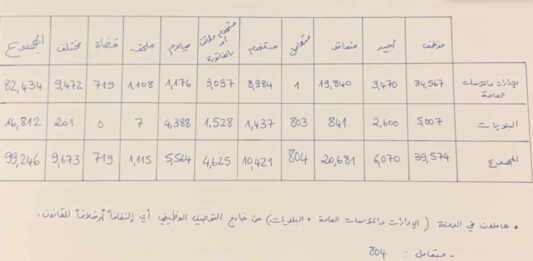 موظف أجير متعاقد متعامل مستخدم مستخدم مؤقت أو بالفاتورة مياوم ملحق قضاة مختلف المجموع
الإدارات والمؤسسات العامة 34,567 3,470 19,840 1 8,984 3,097 1,176 1,108 719 9,472 82,434
البلديات 5,007 2,600 841 803 1,437 1,528 4,388 7 0 201 16,812
المجموع 39,574 6,070 20,681 804 10,421 4,625 5,564 1,115 719 9,673 99,246
• عاملون في الدولة (الإدارات والمؤسسات العامة + البلديات) من خارج التوصيف الوظيفي أي إلتفافاً أو خلافاً للقانون:
- متعامل: 804